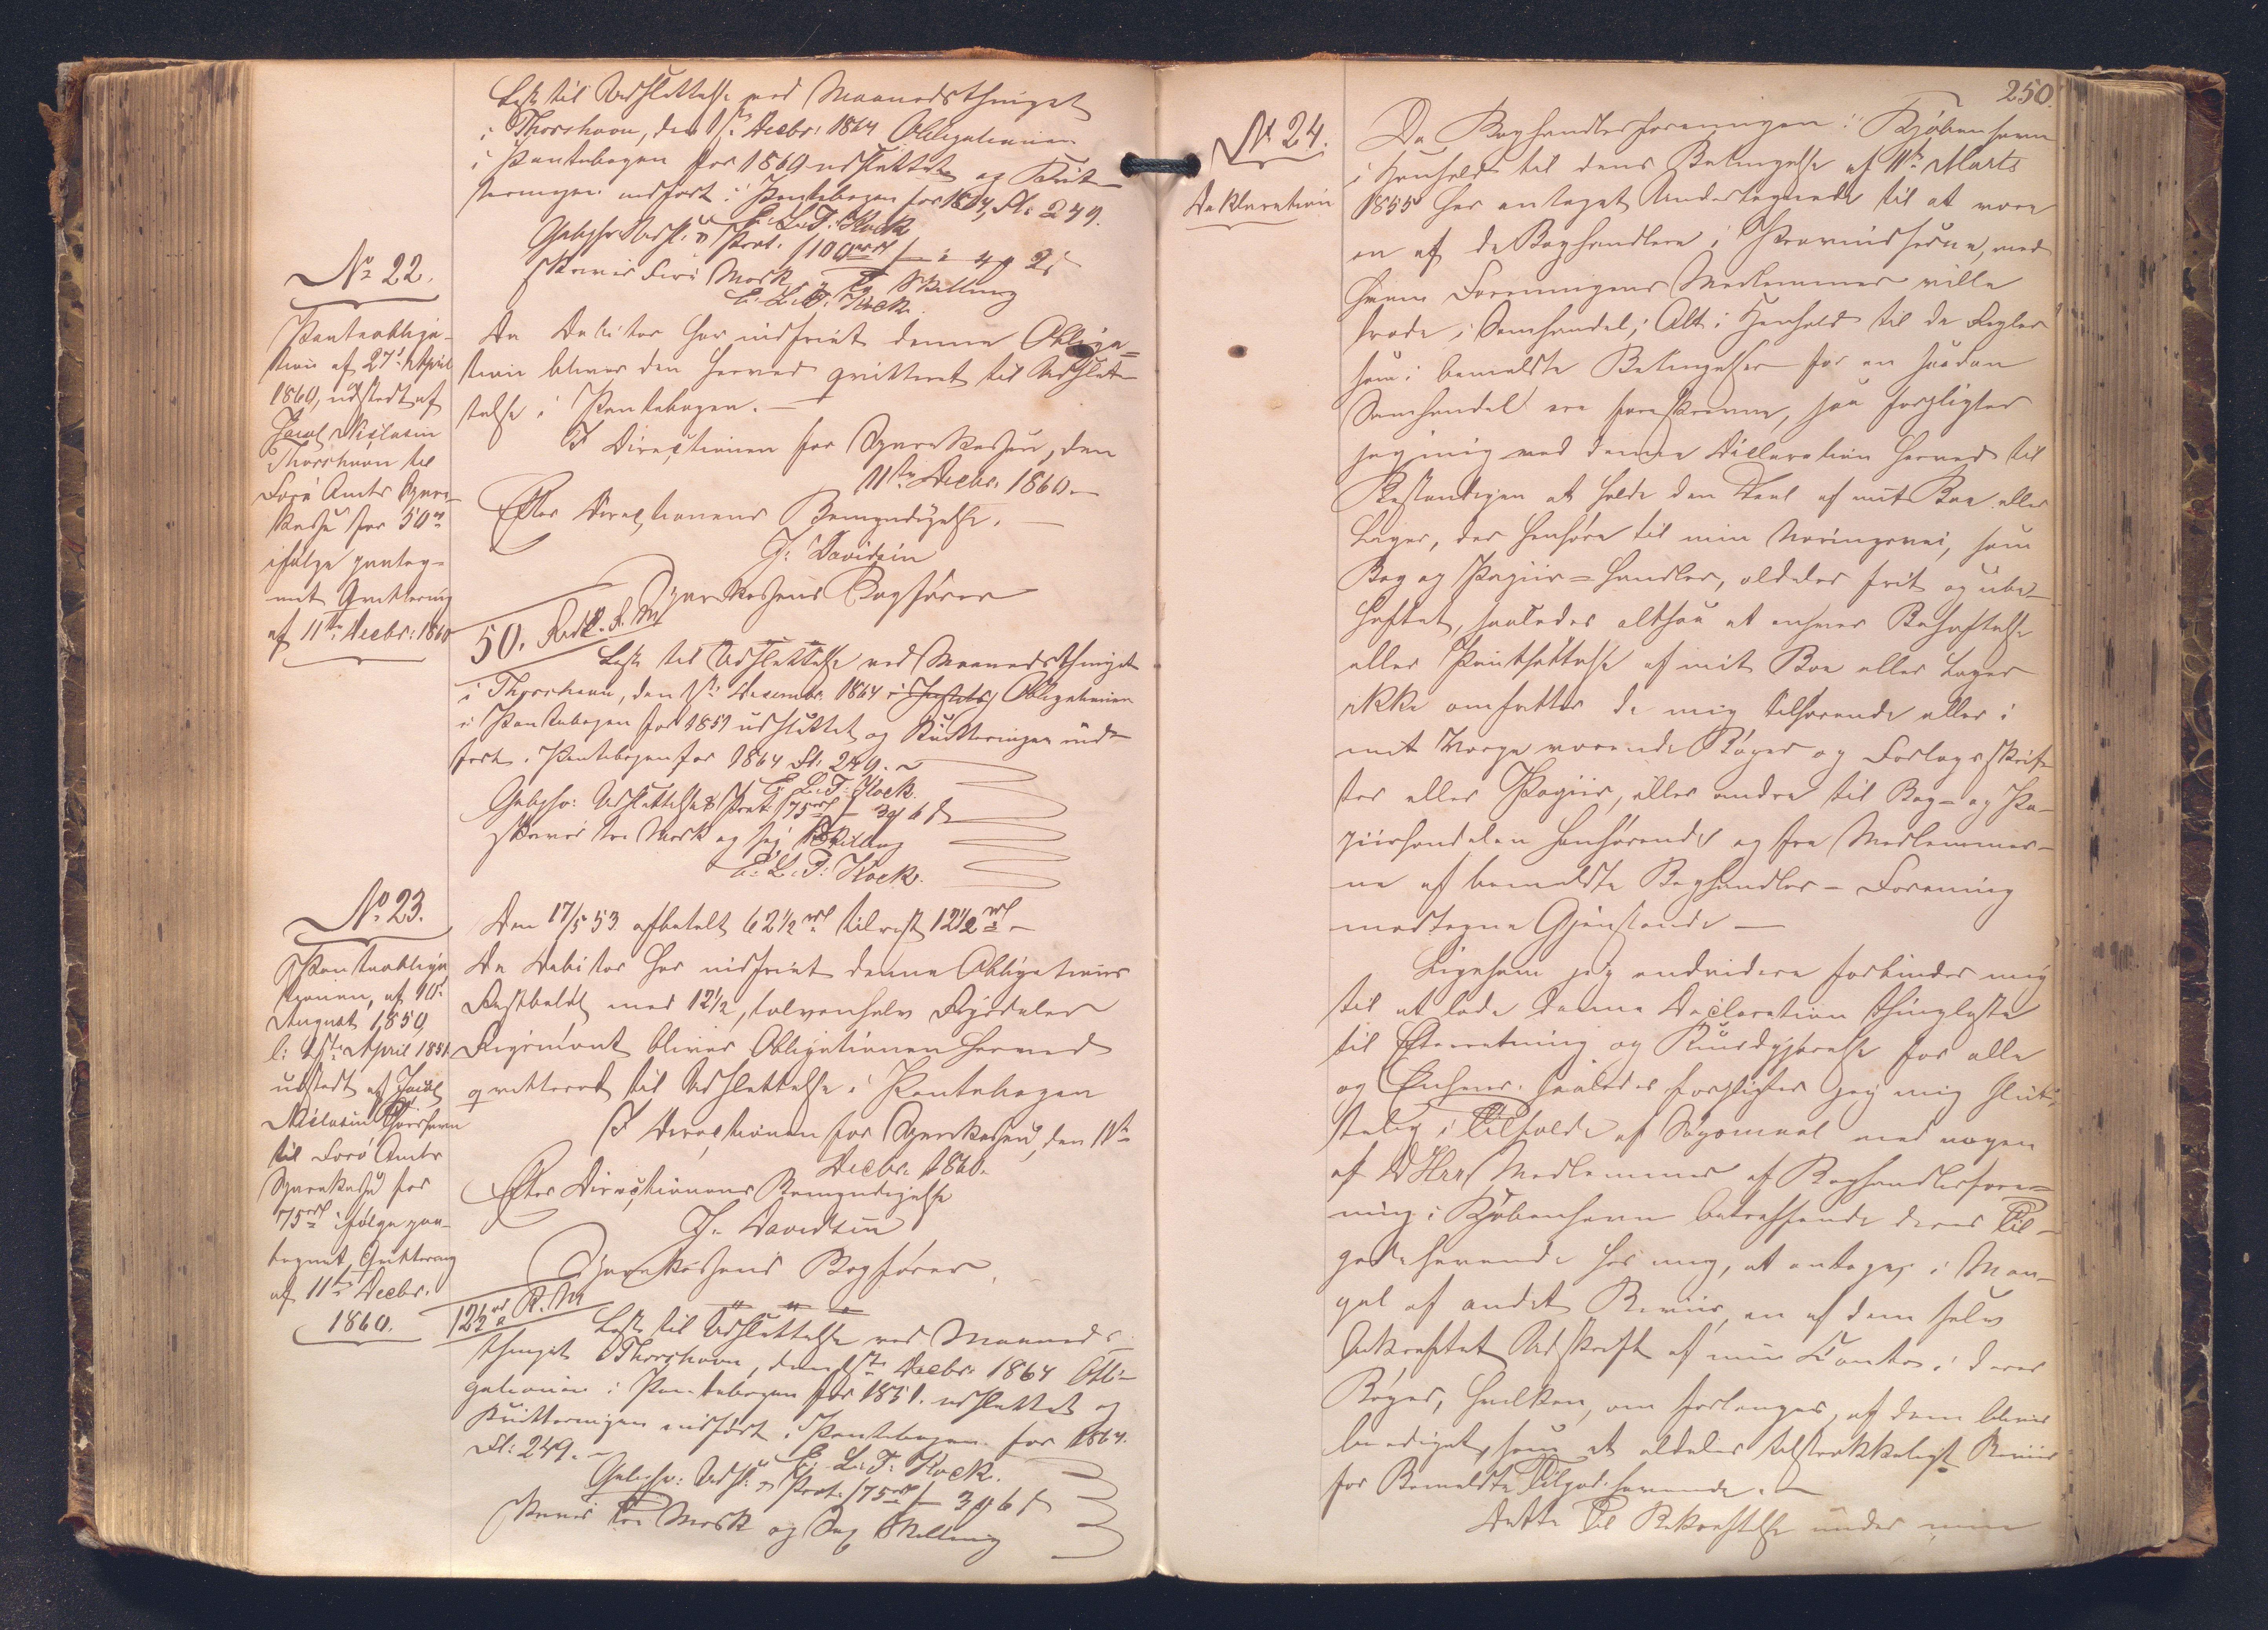 Læst til Udslettelse ved Maanedsthinget
i Thorshavn, den 1ste Decbr: 1864 Obligationen
i Pantebogen for 1860 udslettet og Kvit-
teringen indført i Pantebogen for 1864, Fl: 249.
E. L. T. Kock
Gebyhr: Udsl: & Prot.
skriver fire Mark og Skilling
E. L. T. Kock.
No 22.
Panteobliga-
tion af 27de April
1860, udstedt af
Jacob Niclasen
Thorshavn til
Færø Amts Spare-
kasse for 50rd
ifølge paateg-
net Qvittering
af 11te Decbr: 1860
Da Debitor har indfriet denne Obliga=
tion bliver den herved qvitteret til Udslet-
telse i Pantebogen.—
I Directionen for Sparekassen, den
11te Decbr. 1860.—
Efter Directionens Bemyndigelse.
J: Davidsen
Sparekassens Bogfører
50. Rdl. R. M.
Læst til Udslettelse ved Maanedsthinget
i Thorshavn, den 1ste December 1864 Obligationen
i Pantebogen for 1859 udslettet og Kvitteringen ind-
ført i Pantebogen for 1864 Fl: 249.
E. L. T. Kock.
Gebyhr: Udslettelse & Prot: 75rd 3 # 6 s
skriver tre Mark og sex Skilling
E. L. T. Kock.
No 23.
Panteobliga
tionen, af 10de
August 1850,
l: 1ste April 1851
udstedt af Jacob
Niclasen Thorshavn
til Færø Amts
Sparekasse for
75rd ifølge paa-
tegnet Qvittering
af 11te Decbr.
1860.
Den 17/5 53. afbetalt 62 1/2 rd tilrest 12 1/2 rd —
Da Debitor har indfriet denne Obligations
Restbeløb med 12 1/2, tolvenhalv Rigsdaler
Rigsmønt bliver Obligationen herved
qvitteret til Udslettelse i Pantebogen
I Directionen for Sparekassen, den 11te
Decbr. 1860.
Efter Directionens Bemyndigelse
J. Davidsen
Sparekassens Bogfører.
12 1/2 rd R. M.
Læst til Udslettelse ved Maaneds-
thinget Thorshavn, den 1ste Decbr. 1864 Obli-
gationen i Pantebogen for 1851. udslettet og
Kvitteringen indført i Pantebogen for 1864.
Fl: 249.—
E. L. T. Kock.
Gebyhr: Udsl: & Prot. 75rd 3 # 6 s
skriver tre Mark og Sex Skilling
250.
No 24.
Deklaration
Da Boghandlerforeningen i Kjøbenhavn
i Henhold til dens Betingelse af 11te Marts
1855 har antaget Undertegnede til at være
en af de Boghandlere i Provindserne, med
hvem Foreningens Medlemmer ville
træde i Samhandel; Alt i Henhold til de Regler
som i bemeldte Betingelser for en saadan
Samhandel ere foreskrevne, saa forpligter
jeg mig ved denne Declaration herved til
bestandigen at holde den Deel af mit Boe eller
Lager, der henhøre til min Næringsvei, som
Bog og Papiir=handler, aldeles frit og ube-
hæftet, saaledes altsaa at enhver Behæftelse
eller Pantsættelse af mit Boe eller Lager
ikke omfatter de mig tilhørende eller i
mit Værge værende Bøger og Forlagsskrif-
ter eller Papiir, eller andre til Bog- og Pa-
piirhandelen henhørende og fra Medlemmer-
ne af bemeldte Boghandler-Forening
modtagne Gjenstande —
Ligesom jeg endvidere forbinder mig
til at lade denne Declaration thinglyse
til Efterretning og Kundgjørelse for alle
og Enhver. Saaledes forpligter jeg mig slut-
telig i Tilfælde af Søgsmaal med nogen
af DHrr Medlemmer af Boghandlerfore-
ning i Kjøbenhavn betræffende deres Til-
godehavende hos mig, at antage, i Man-
gel af andet Beviis, en af dem selv
bekræftet Udskrift af min Conto i deres
Bøger, hvilken, om forlanges, af dem bliver
beediget, som et aldeles tilstrækkeligt Beviis
for Bemeldte Tilgodehavende. —
Dette til Bekræftelse under min